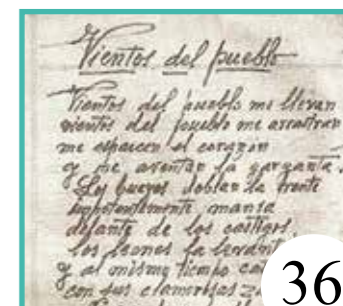 Vientos del pueblo
Vientos del pueblo me llevan
vientos del pueblo me arrastran
me esparcen el corazon
y me aventan la garganta.
Los bueyes doblan la frente
impotentemente mansa
delante de los castigos,
los leones la levantan
y al mismo tiempo
con sus clamorosas
36